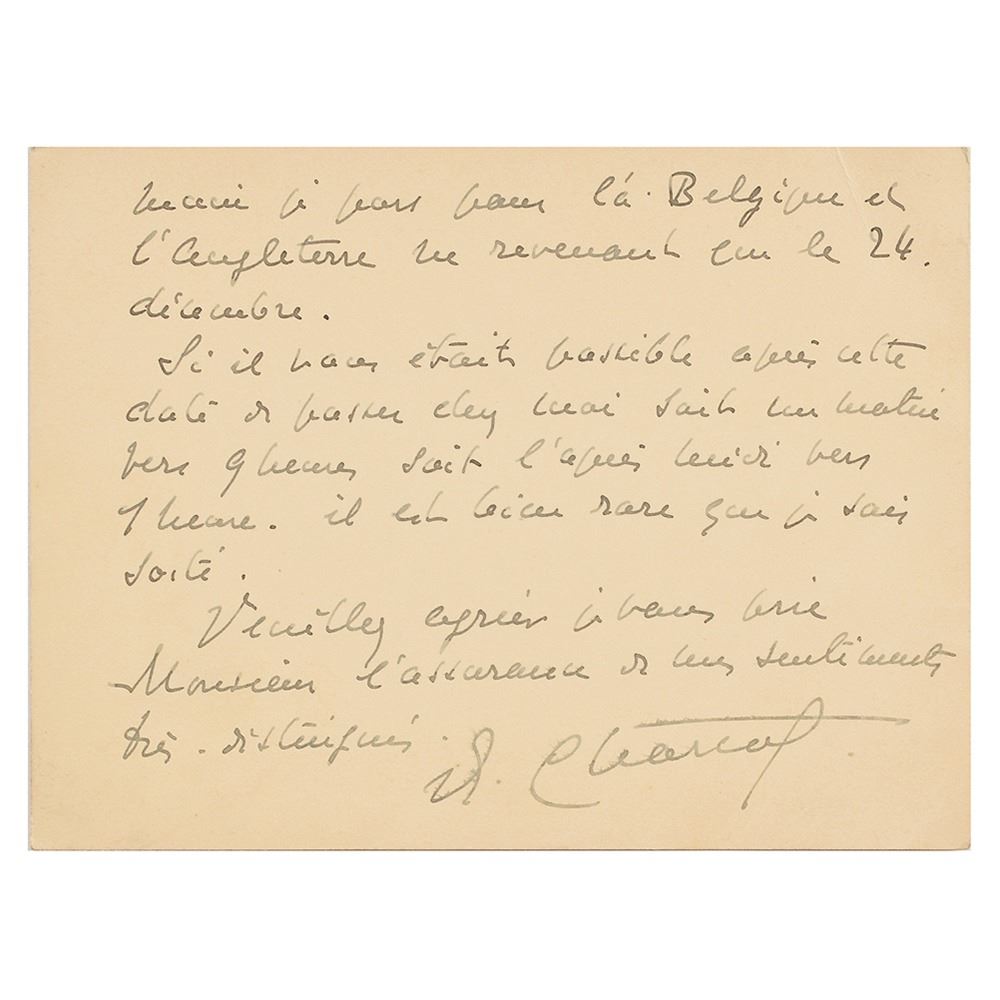 mais je pars pour la Belgique et
l'Angleterre ne revenant que le 24.
décembre.
Si il vous était possible après cette
date de passer chez moi soit un matin
vers 9 heures soit l'après midi vers
1 heure. il est bien rare que je sois
sorti.
Veuillez agréer je vous prie
Monsieur l'assurance de mes sentiments
très distingués.
Charcot